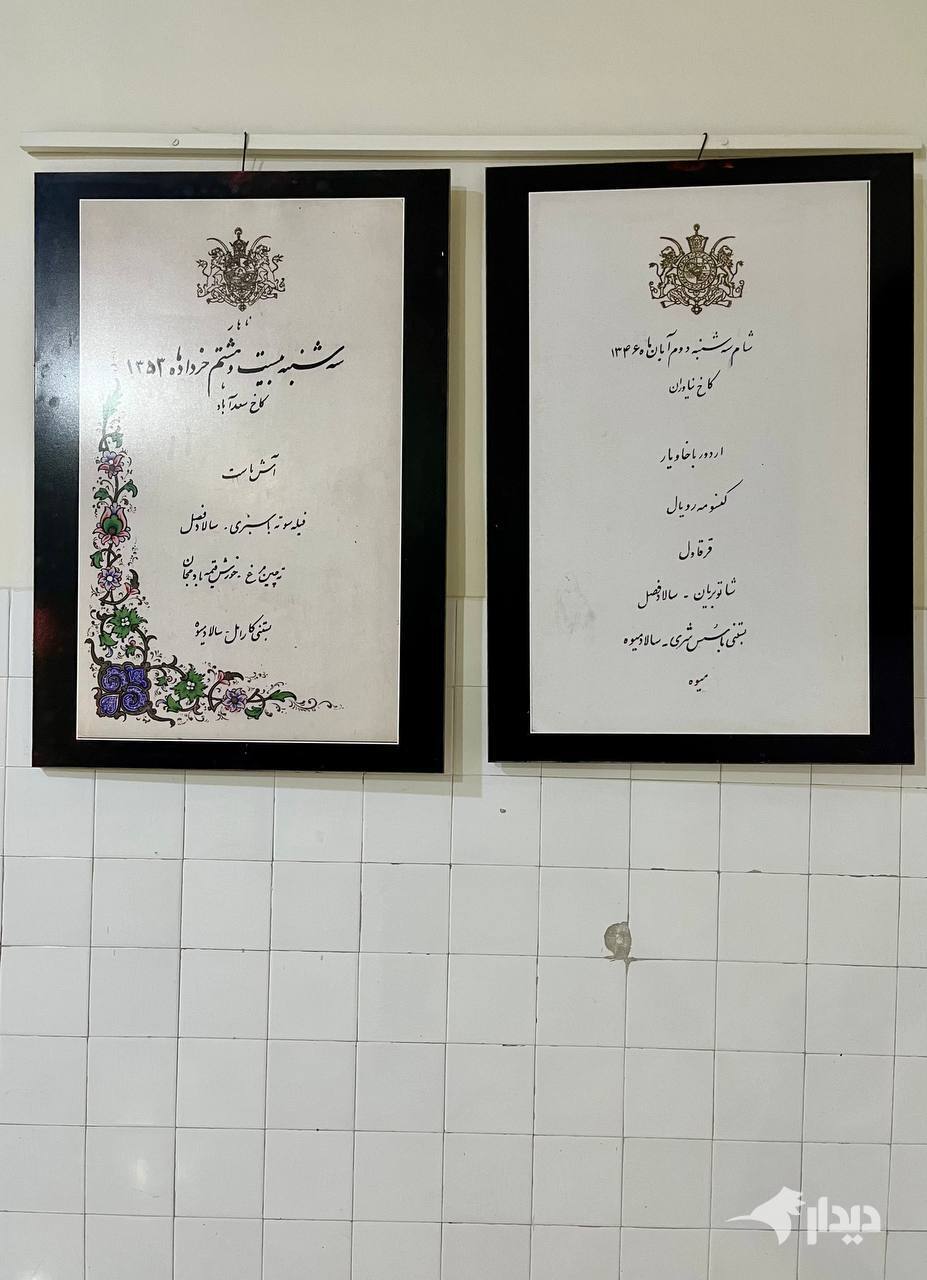 شام سه شنبه دوم آبان ماه ۱۳۴۶
کاخ نیاوران
اردور با خاویار
کنسومه رویال
قرقاول
شاتوبریان - سالاد فصل
بستنی با سس شری - سالاد میوه
میوه
ناهار
سه شنبه بیست و هشتم خرداد ماه ۱۳۵۳
کاخ سعدآباد
آش ماست
فیله سوته با سبزی - سالاد فصل
ته چین مرغ - خورش قیمه بادمجان
بستنی کارامل - سالاد میوه
دیدار